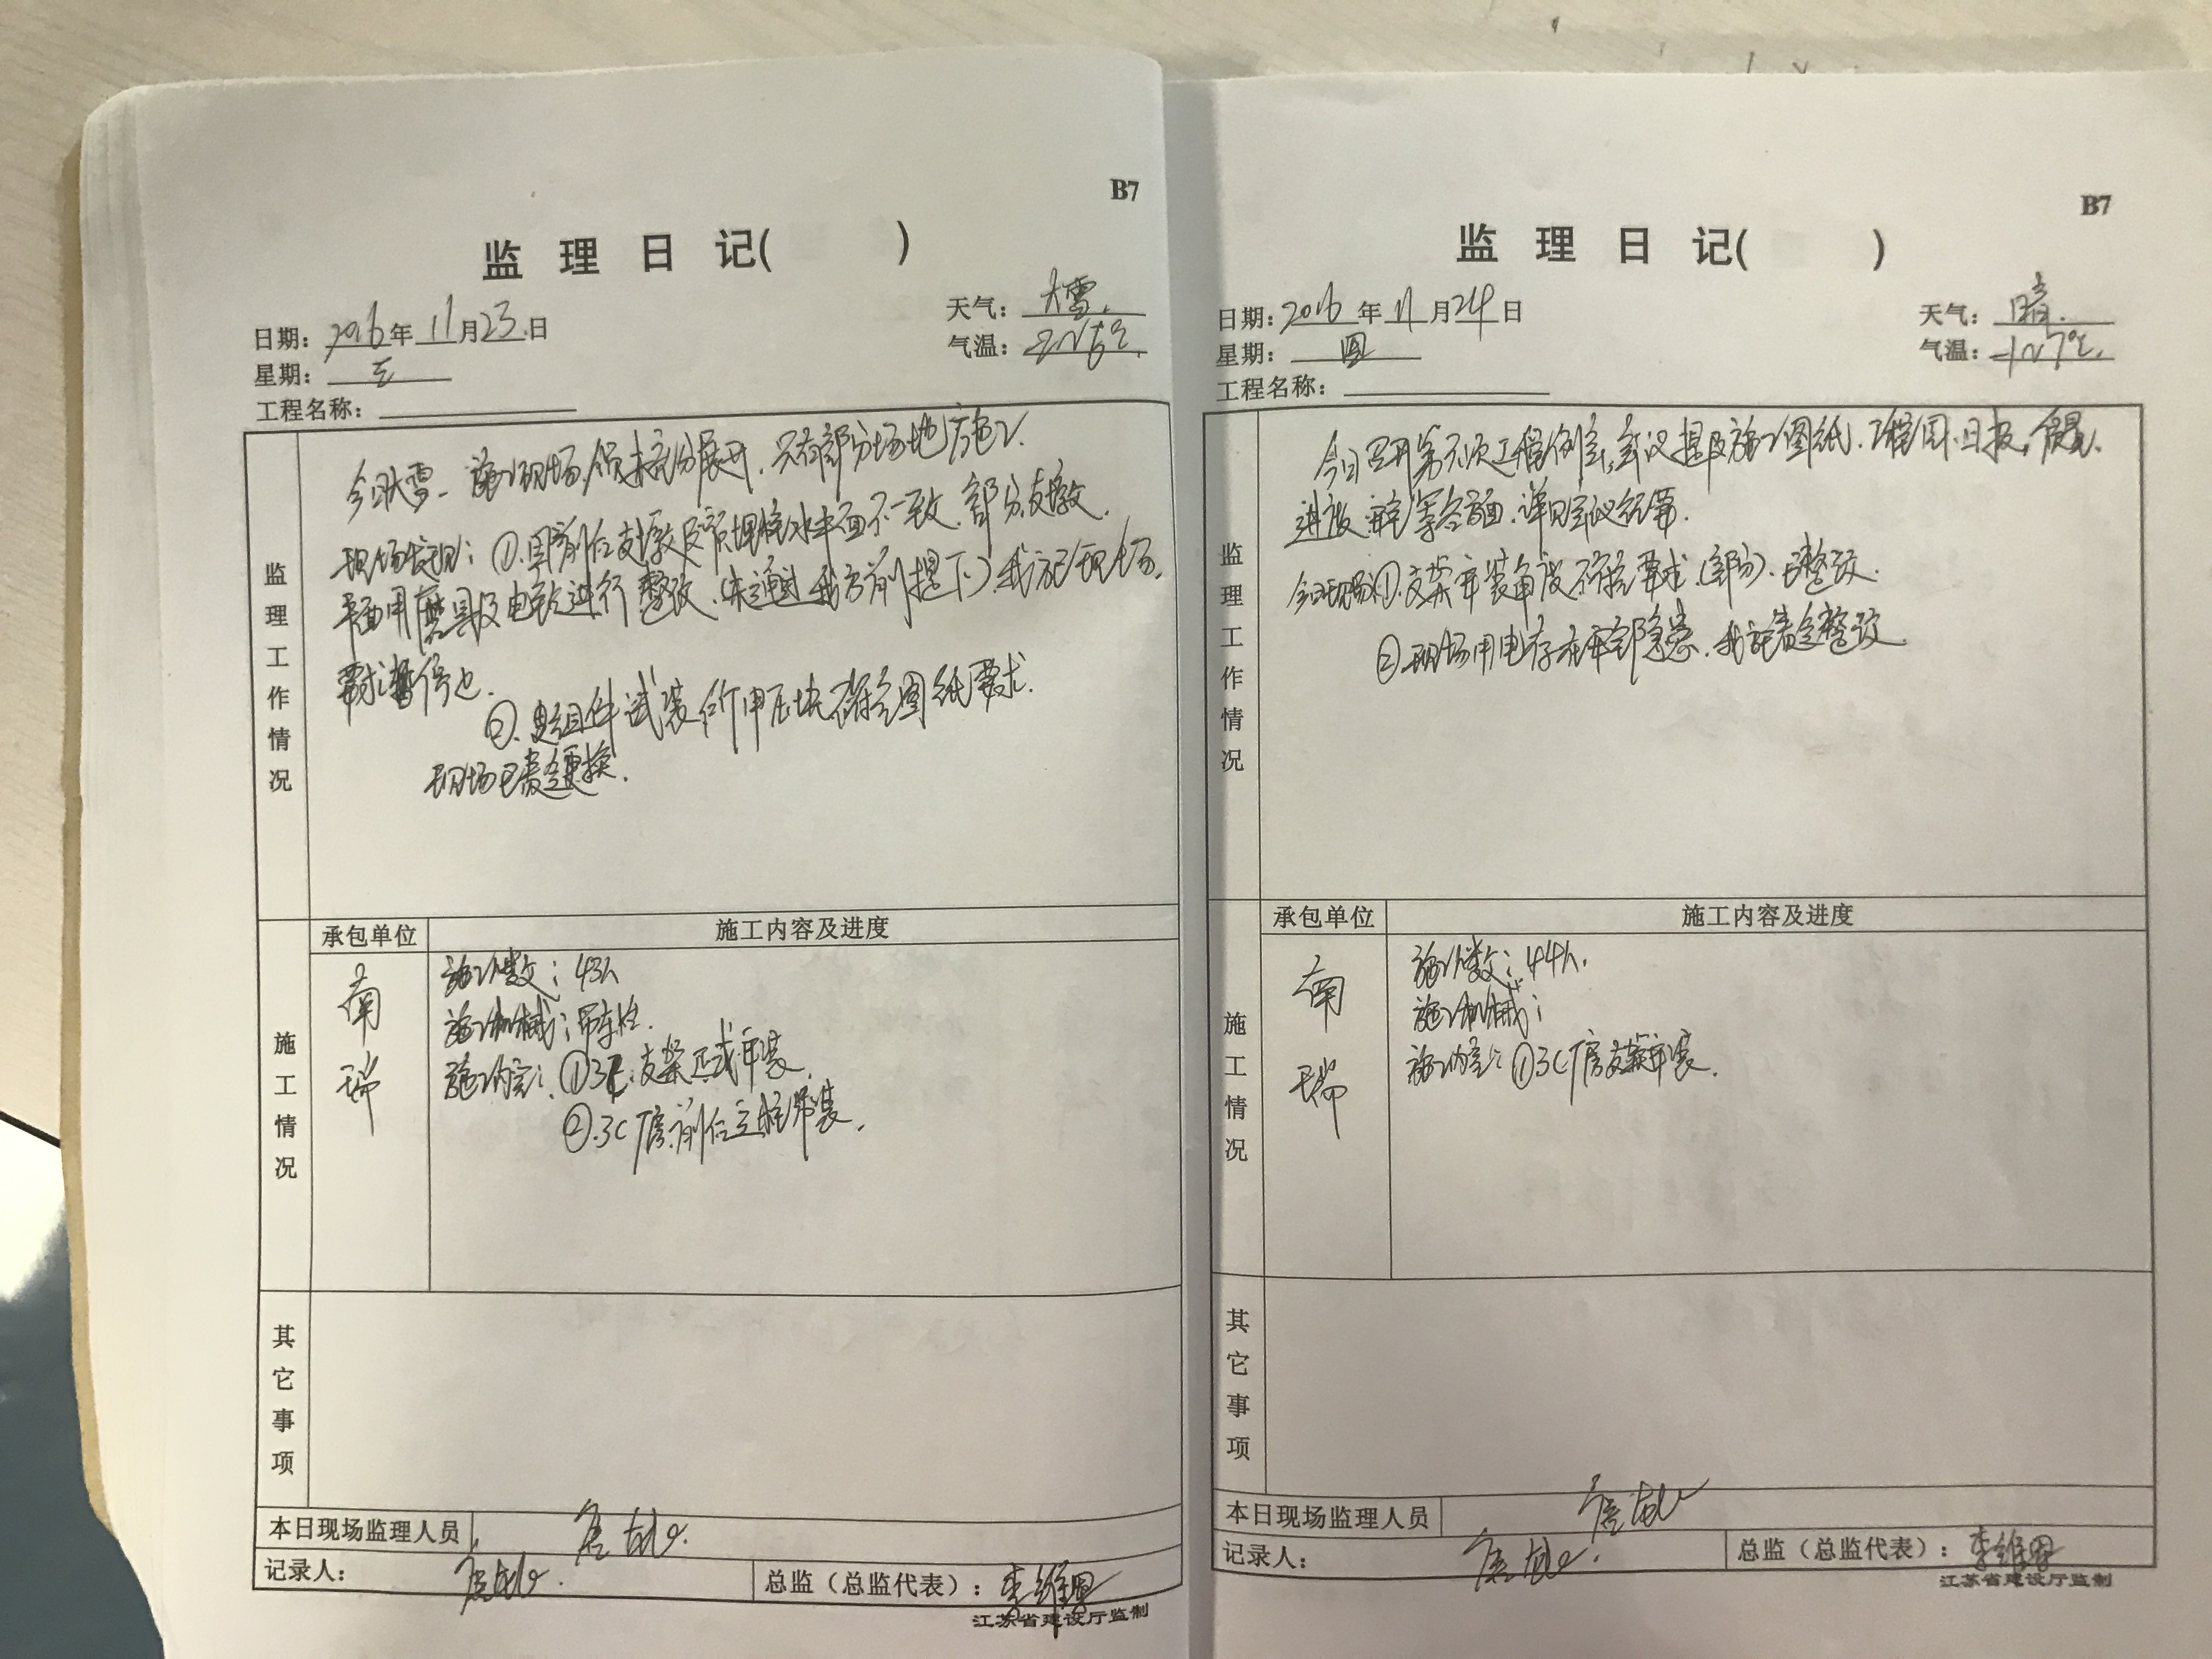 B7
监理日记( )
日期：2016年11月23日
天气：大雪.
星期：三
气温：
工程名称：
监理工作情况
今日大雪. 施工现场 未充份展开. 只有部分场地施工.
现场发现：①.目前 支墩及预埋件水平面不一致. 部分支墩.
平面用磨具及电 进行整改.(未通过我方前提下) 我方已现场.
要求暂停止.
②. 组件试装 所用压块不符合图纸要求.
现场已责令更换.
施工情况
承包单位
施工内容及进度
南瑞
施工人数：43人
施工机械：吊车1台.
施工内容：① 支架正式安装.
②.3C厂房.前 立柱吊装.
其它事项
本日现场监理人员
记录人：
总监（总监代表）：李维
江苏省建设厅监制
B7
监理日记( )
日期：2016年11月24日
天气：晴.
星期：四
气温：-1~7℃.
工程名称：
监理工作情况
今日召开第六次工程例会, 会议提及施工图纸. 工程周.日报, 质量.
进度 安全等各方面. 详见会议纪要.
今日现场①.支架安装角度不符合要求.(部分). 已整改.
②.现场用电存在安全隐患. 我方已责令整改.
施工情况
承包单位
施工内容及进度
南瑞
施工人数：44人.
施工机械：
施工内容：①3C厂房支架安装.
其它事项
本日现场监理人员
记录人：
总监（总监代表）：李维
江苏省建设厅监制